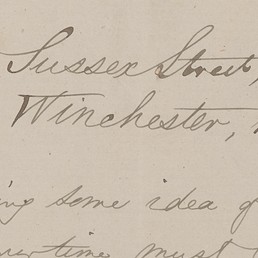 Sussex Street,
Winchester,
ing some idea
must